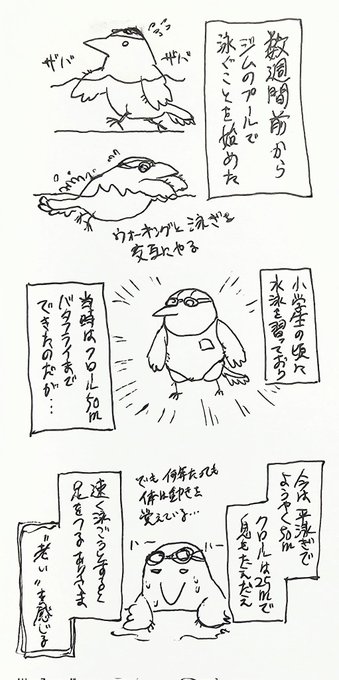 数週間前から
ジムのプールで
泳ぐことを始めた
ザバ
ザバ
ウォーキングと泳ぎを
交互にやる
小学生の頃に
水泳を習っており
当時はクロール50m
バタフライまで
できたのだが…
今は平泳ぎで
ようやく50m
クロールは25mで
息もたえだえ
でも何年たっても
体は動きを
覚えている…
ハー
ハー
速く泳ごうとすると
足をつるありさま
"老い"を感じる